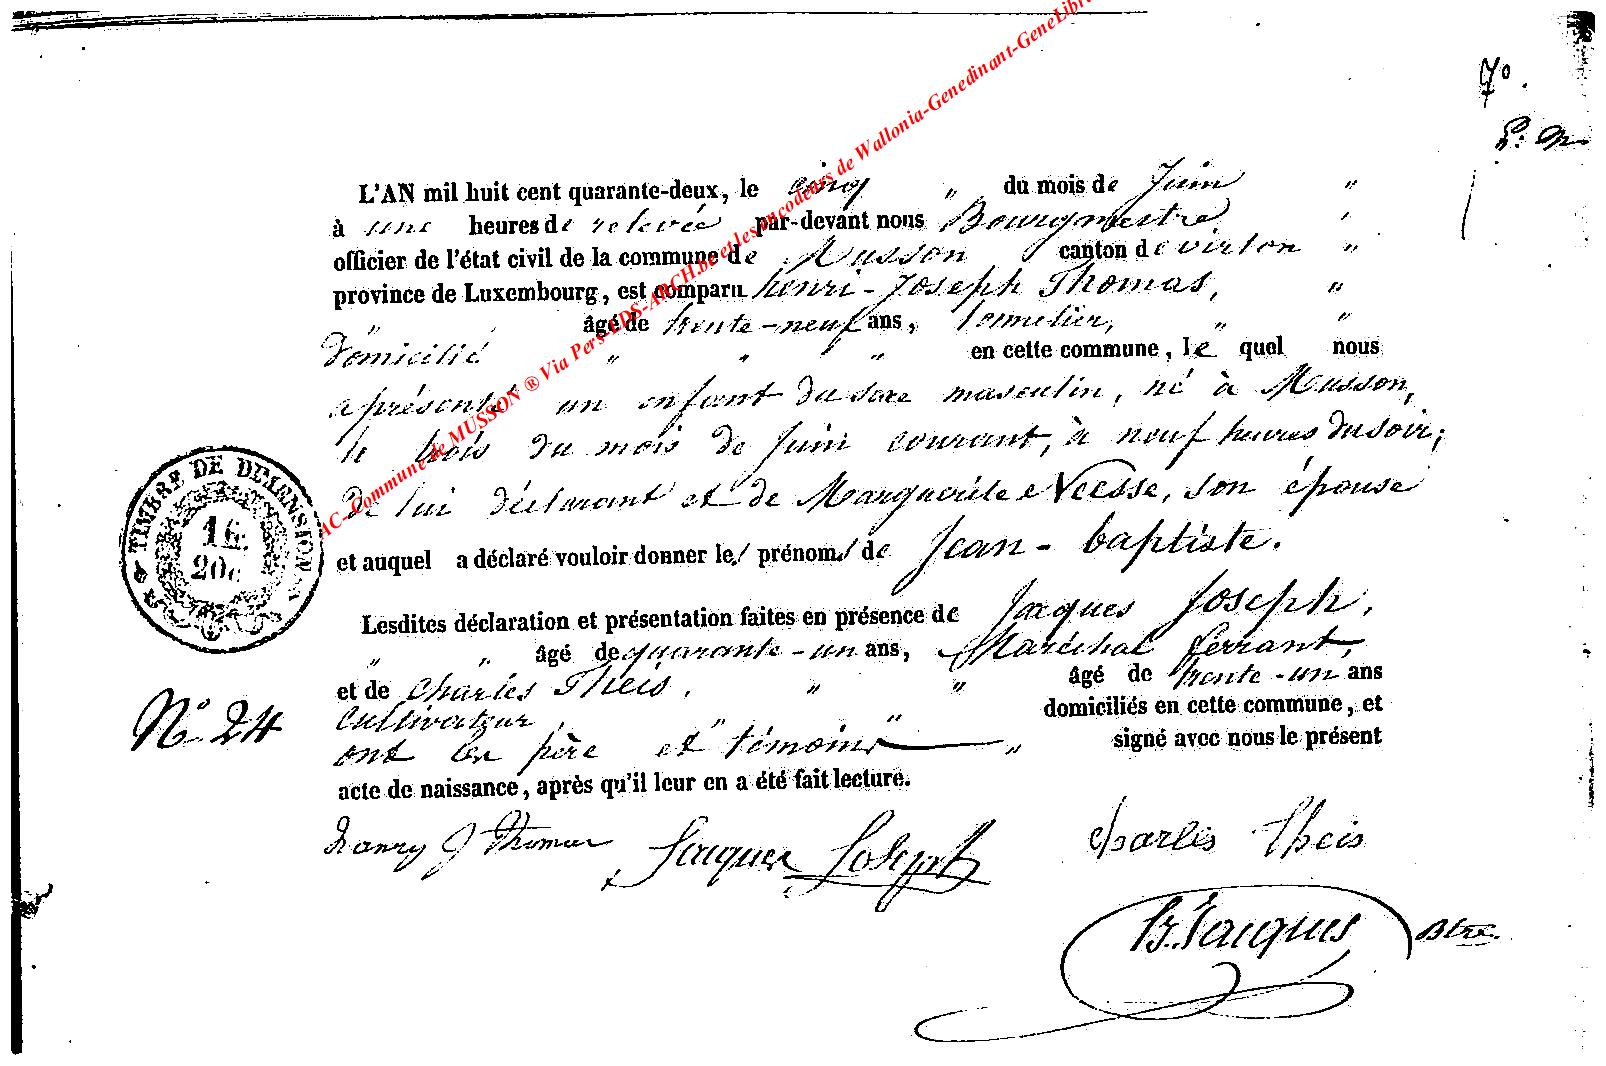 7°.
AC-Commune de MUSSON ® Via Pers-EDS-ARCH.be et les encodeurs de Wallonia-Genedinant-GeneLibr
L'AN mil huit cent quarante-deux, le cinq " du mois de Juin "
à une heures de relevée par-devant nous Bourgmestre "
officier de l'état civil de la commune de Musson canton de virton "
province de Luxembourg, est comparu henri-Joseph Thomas, "
" âgé de trente-neuf ans, tonnelier, " "
domicilié " " " en cette commune, le quel nous
a présenté un enfant du sexe masculin, né à Musson,
le trois du mois de Juin courant, à neuf heures du soir;
de lui déclarant et de Marguerite Neesse, son épouse
et auquel a déclaré vouloir donner le/ prénom/ de Jean-baptiste.
Lesdites déclaration et présentation faites en présence de Jacques Joseph,
" " âgé de quarante-un ans, Maréchal ferrant,
et de Charles Theis, " " âgé de trente-un ans
cultivateur " " domiciliés en cette commune, et
ont les père et témoins " signé avec nous le présent
acte de naissance, après qu'il leur en a été fait lecture.
TIMBRE DE DIMENSION
16.
20c
N° 24
hanry J Thomas Jacques Joseph Charles Theis
Jacques Btre.